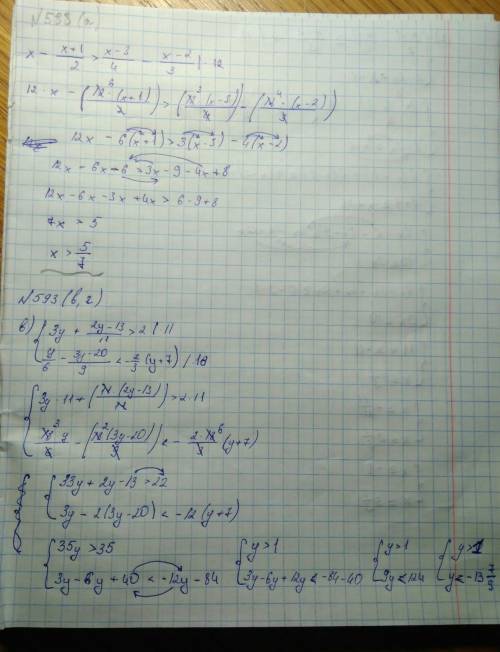 №593 (а)
x - (x+1)/2 > (x-3)/4 - (x-2)/3 | · 12
12 · x - (12⁶ · (x+1)/2) > (12³ · (x-3)/4) - (12⁴ · (x-2)/3)
12x - 6(x+1) > 3(x-3) - 4(x-2)
12x - 6x - 6 > 3x - 9 - 4x + 8
12x - 6x - 3x + 4x > 6 - 9 + 8
7x > 5
x > 5/7
№593 (в, г)
в) { 3y + (2y-13)/11 > 2 | · 11
y/6 - (3y-20)/9 < -2/3 (y+7) / 18
{ 3y · 11 + (11 · (2y-13)/11) > 2 · 11
18³ y/6 - (18² (3y-20)/9) < - 2 · 18⁶/3 (y+7)
{ 33y + 2y - 13 > 22
3y - 2(3y-20) < -12 (y+7)
{ 35y > 35 { y > 1 { y > 1 { y > 1
3y - 6y + 40 < -12y - 84 3y - 6y + 12y < -84 - 40 9y < 124 y < -13